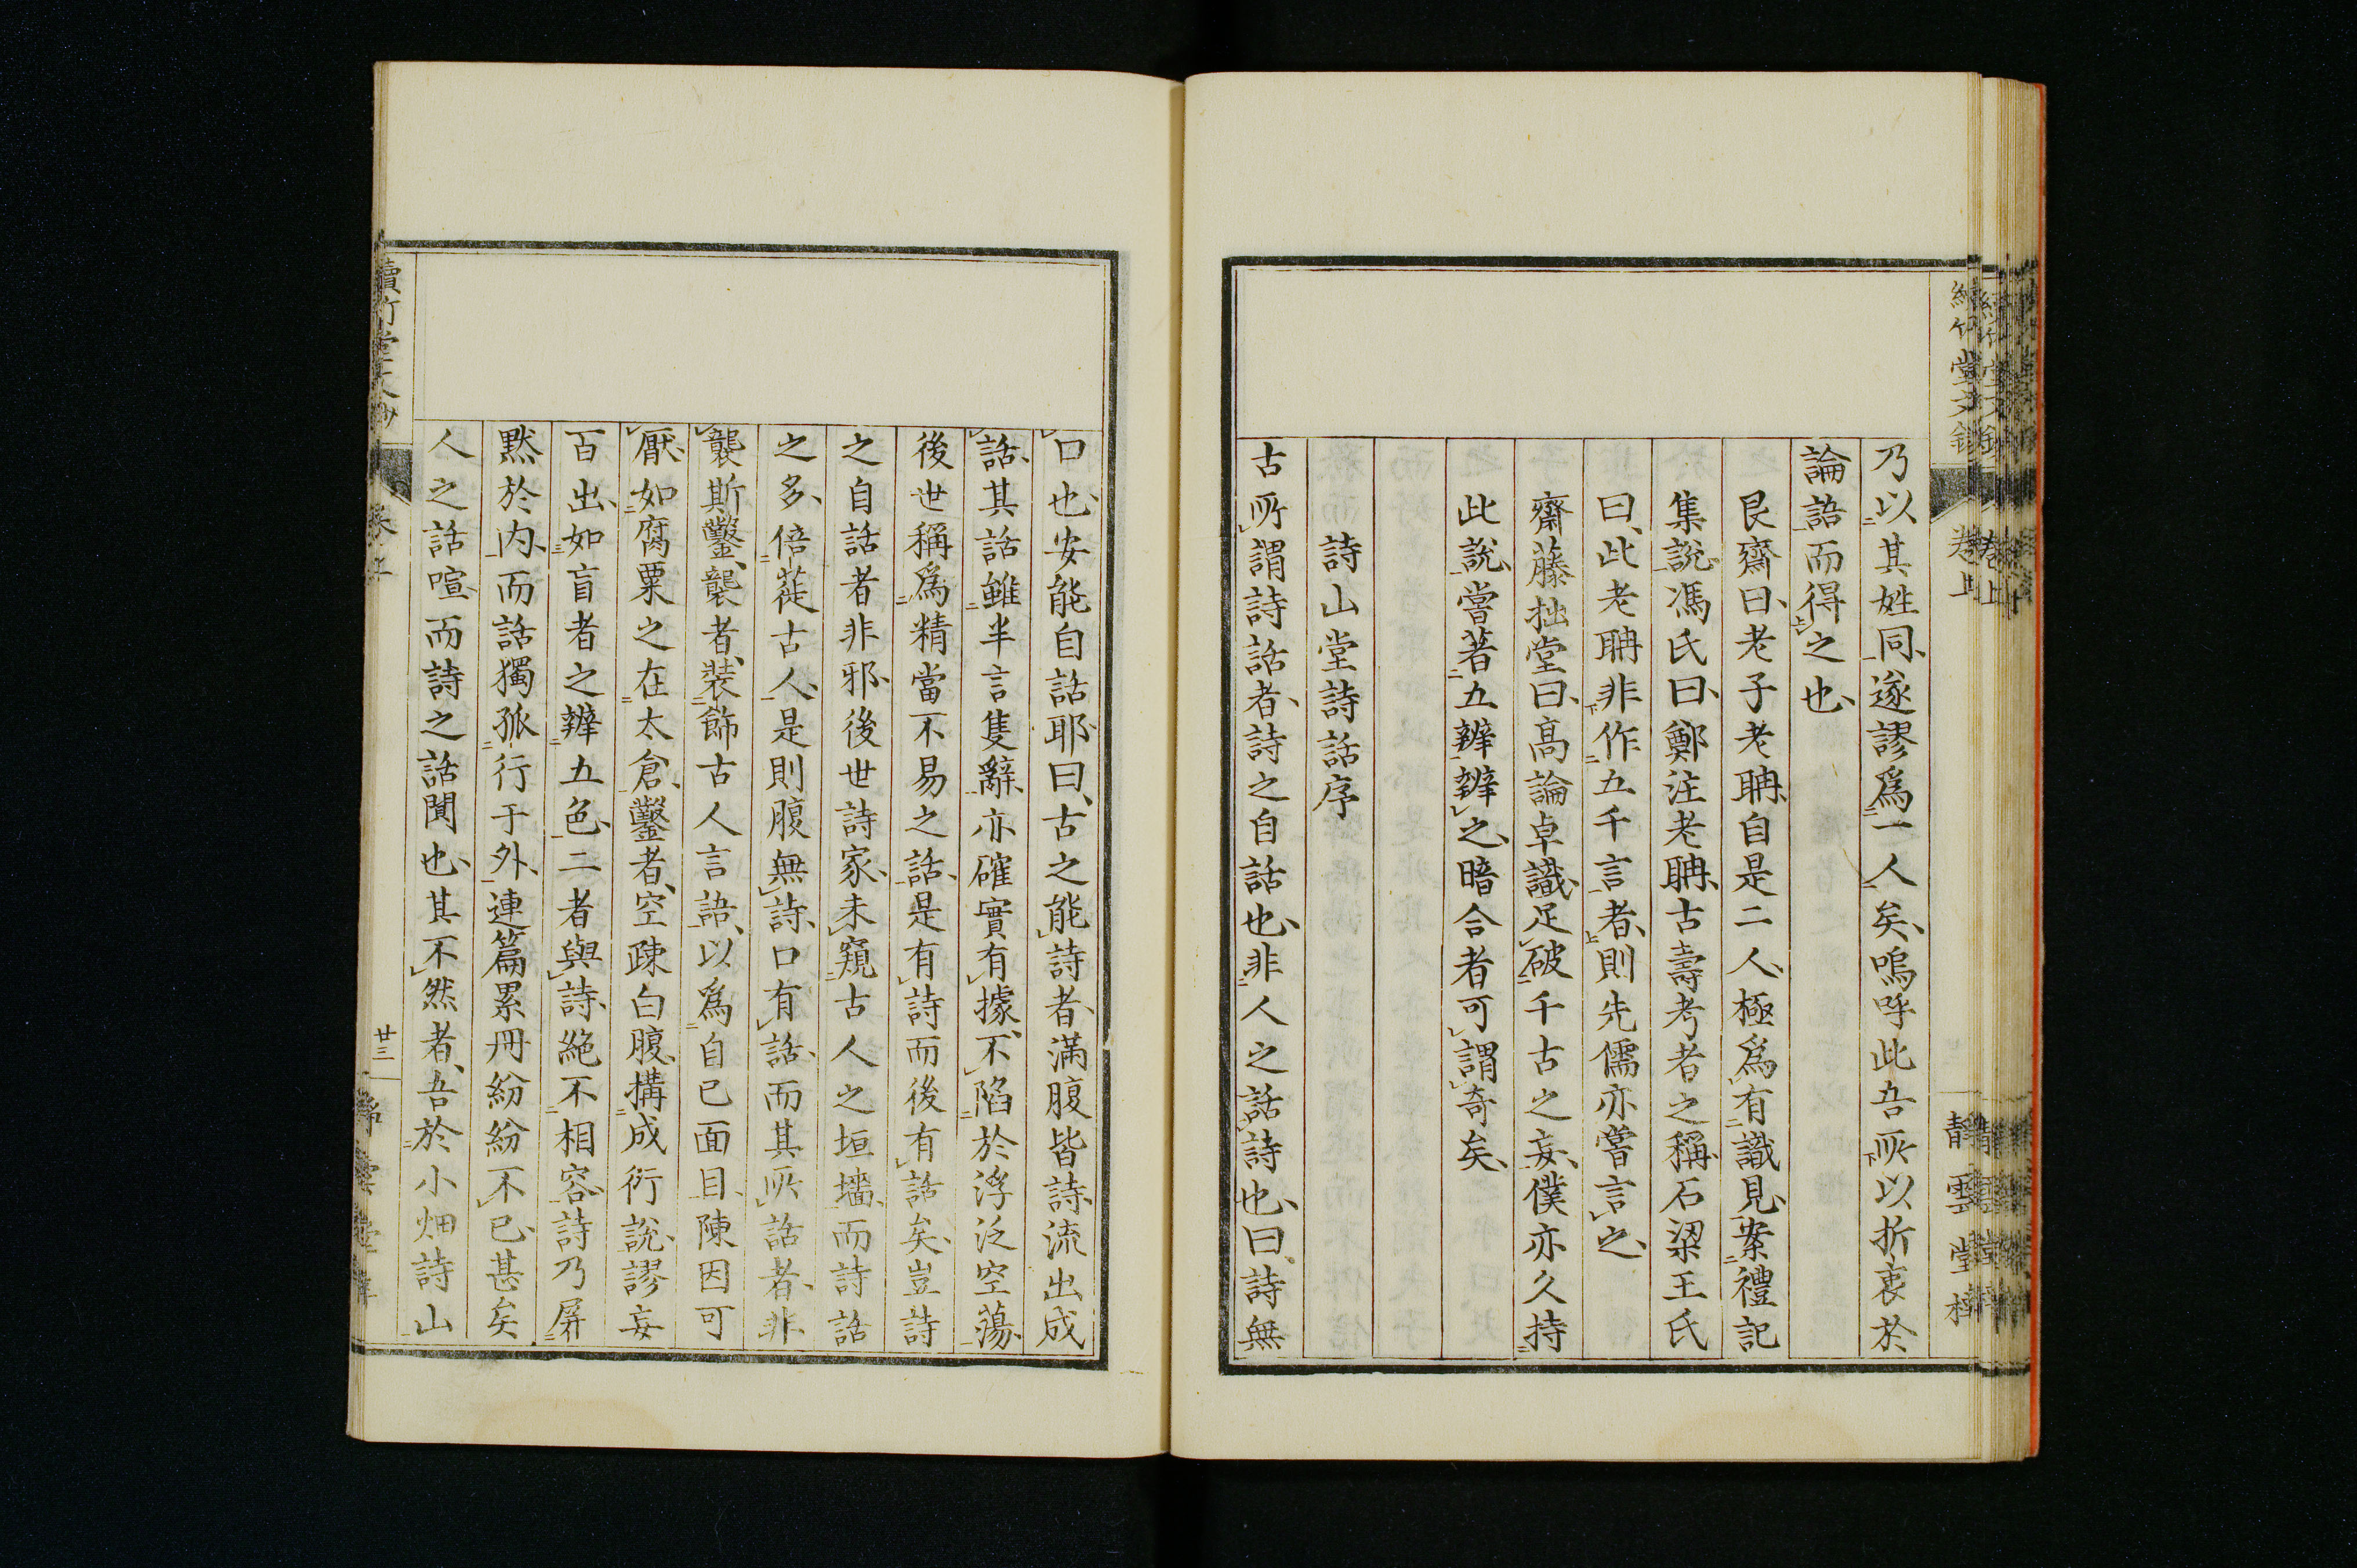 乃以其姓同、遂謬爲一人矣、嗚呼此吾所以折衷於
論語而得之也、
艮齋曰、老子老聃、自是二人、極爲有識見、案禮記
集說、馮氏曰、鄭注老聃、古壽考者之稱、石梁王氏
曰、此老聃非作五千言者、則先儒亦嘗言之、
齋藤拙堂曰、高論卓識、足破千古之妄、僕亦久持
此說、嘗著五辨辨之、暗合者可謂奇矣、
詩山堂詩話序
古所謂詩話者、詩之自話也、非人之話詩也、曰、詩無
口也、安能自話耶、曰、古之能詩者、滿腹皆詩、流出成
話、其話雖半言隻辭、亦確實有據、不陷於浮泛空蕩、
後世稱爲精當不易之話、是有詩而後有話矣、豈詩
之自話者非邪、後世詩家、未窺古人之垣墻、而詩話
之多、倍蓰古人、是則腹無詩、口有話、而其所話者、非
襲斯鑿、襲者、裝飾古人言語、以爲自己面目、陳因可
厭、如腐粟之在太倉、鑿者、空疎白腹、構成衍說、謬妄
百出、如盲者之辨五色、二者與詩、絕不相容、詩乃屛
默於内、而話獨孤行于外、連篇累冊、紛紛不已、甚矣
人之話喧、而詩之話聞也、其不然者、吾於小畑詩山
卷上
靜雲堂梓
廿三